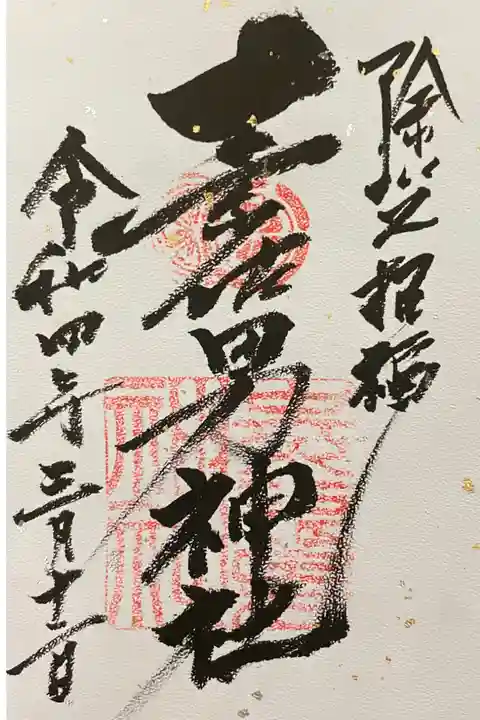 除災招福
素佐男神社
令和四年三月十一日